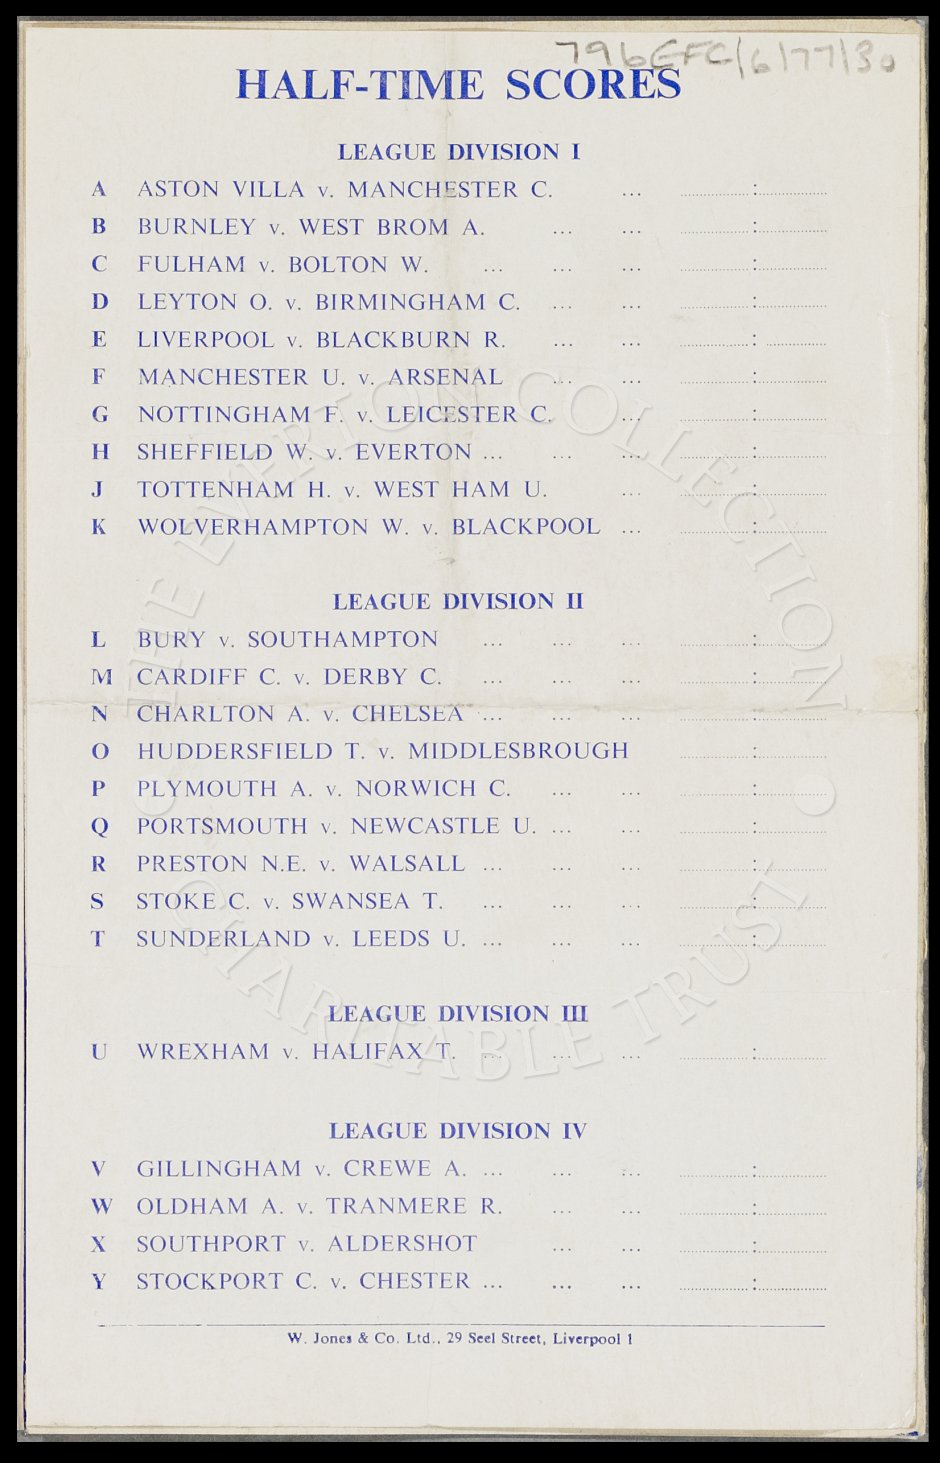 796EFC/6/77/30
HALF-TIME SCORES
LEAGUE DIVISION I
A ASTON VILLA v. MANCHESTER C. ... ............:............
B BURNLEY v. WEST BROM A. ... ... ............:............
C FULHAM v. BOLTON W. ... ... ... ............:............
D LEYTON O. v. BIRMINGHAM C. ... ... ............:............
E LIVERPOOL v. BLACKBURN R. ... ... ............:............
F MANCHESTER U. v. ARSENAL ... ... ............:............
G NOTTINGHAM F. v. LEICESTER C. ... ............:............
H SHEFFIELD W. v. EVERTON ... ... ... ............:............
J TOTTENHAM H. v. WEST HAM U. ... ............:............
K WOLVERHAMPTON W. v. BLACKPOOL ... ............:............
LEAGUE DIVISION II
L BURY v. SOUTHAMPTON ... ... ... ............:............
M CARDIFF C. v. DERBY C. ... ... ... ............:............
N CHARLTON A. v. CHELSEA ... ... ... ............:............
O HUDDERSFIELD T. v. MIDDLESBROUGH ............:............
P PLYMOUTH A. v. NORWICH C. ... ... ............:............
Q PORTSMOUTH v. NEWCASTLE U. ... ... ............:............
R PRESTON N.E. v. WALSALL ... ... ... ............:............
S STOKE C. v. SWANSEA T. ... ... ... ............:............
T SUNDERLAND v. LEEDS U. ... ... ... ............:............
LEAGUE DIVISION III
U WREXHAM v. HALIFAX T. ... ... ... ............:............
LEAGUE DIVISION IV
V GILLINGHAM v. CREWE A. ... ... ... ............:............
W OLDHAM A. v. TRANMERE R. ... ... ............:............
X SOUTHPORT v. ALDERSHOT ... ... ............:............
Y STOCKPORT C. v. CHESTER ... ... ... ............:............
W. Jones & Co. Ltd., 29 Seel Street, Liverpool 1
THE EVERTON COLLECTION
CHARITABLE TRUST